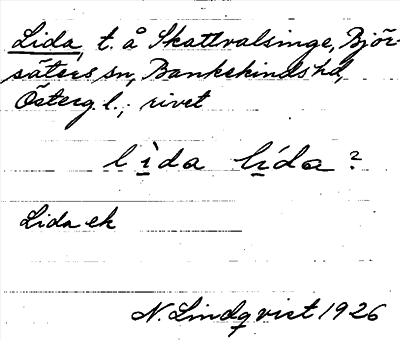 Lida, t. å Skattvalsinge, Björ-
säters sn, Bankekinds hd,
Österg. l.; rivet
lìda lída?
Lida ek
N. Lindqvist 1926